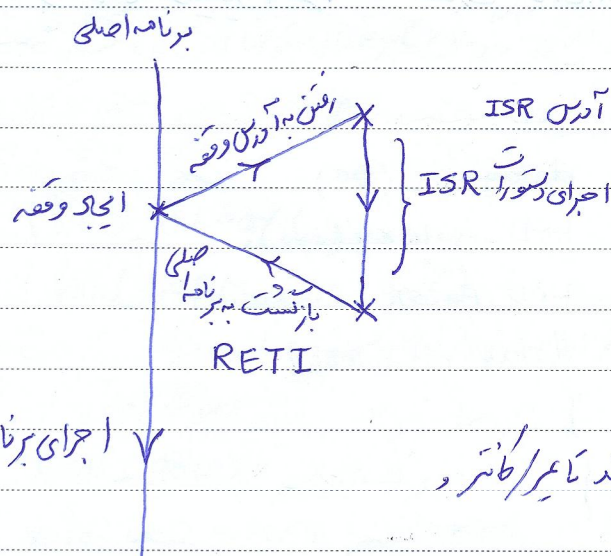 برنامه اصلی
آدرس ISR
رفتن به آدرس وقفه
اجرای دستورات ISR
ایجاد وقفه
بازگشت به برنامه
اصلی
RETI
اجرای برنا
تایمر/کانتر و